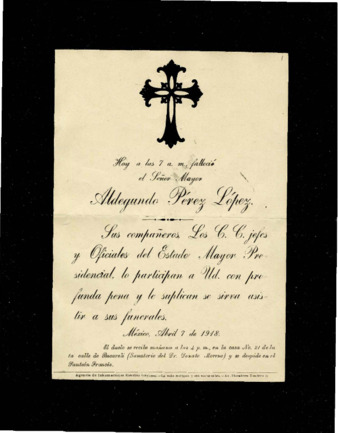 Hoy a las 7 a. m. falleció
el Señor Mayor
Aldegundo Pérez López.
Sus compañeros Los C. C. jefes
y Oficiales del Estado Mayor Pre-
sidencial, lo participan a Ud. con pro-
funda pena y le suplican se sirva asis-
tir a sus funerales.
México, Abril 7 de 1918.
El duelo se recibe mañana a las 4 p. m., en la casa No. de la
calle de (Sanatorio del Dr. Donato Moreno) y se despide en el
Panteón Francés.
Agencia de Inhumaciones